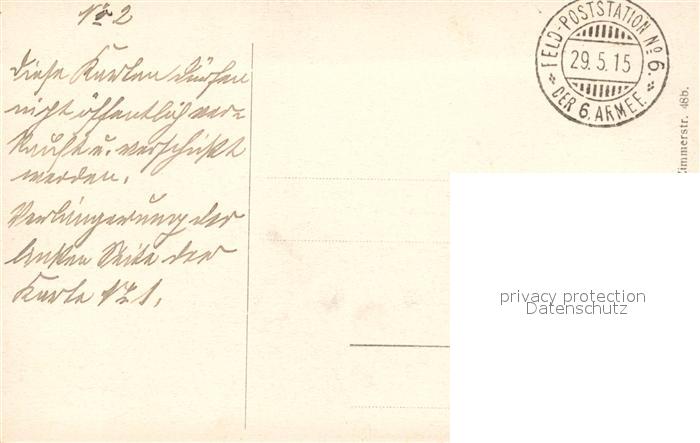 No 2
Diese Karten dürfen
nicht öffentlich ver=
kauft u. verschickt
werden.
Verlängerung der
linken Seite der
Karte No 1.
FELD-POSTSTATION No 6.
29.5.15
DER 6. ARMEE.
Zimmerstr. 48b.
privacy protection
Datenschutz